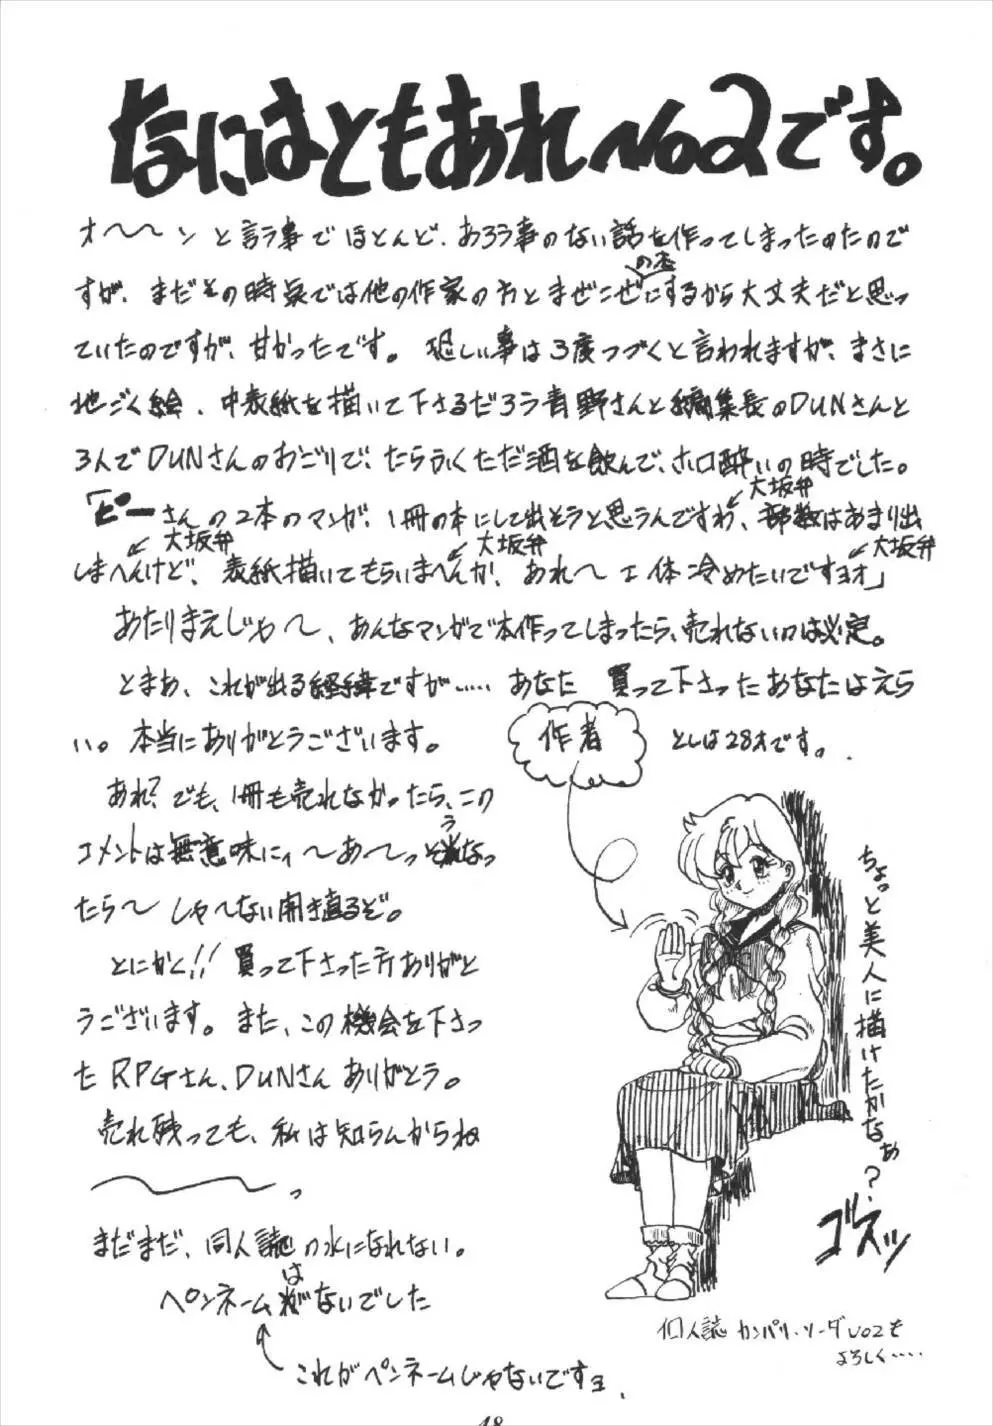 なにはともあれNo2です。
オ〜〜ンと言う事でほとんど、あろう事のない話を作ってしまったのたので
の本
すが、まだその時点では他の作家の方とまぜこぜにするから大丈夫だと思っ
ていたのですが、甘かったです。恐しい事は3度つづくと言われますが、まさに
地ごく絵、中表紙を描いて下さるだろう青野さんと編集長のDUNさんと
3人でDUNさんのおごりで、たらふくただ酒を飲んで、ホロ酔いの時でした。
大坂弁
「ピーさんの2本のマンガ、1冊の本にして出そうと思うんですわ、部数はあまり出
大坂弁 大坂弁 大坂弁
しまへんけど、表紙描いてもらいまへんか、あれ〜エ体冷めたいですヨオ」
あたりまえじゃ〜、あんなマンガで本作ってしまったら、売れないのは必定。
とまあ、これが出る経緯ですが……あなた 買って下さったあなたはえら
い。本当にありがとうございます。
作者
としは28才です。
あれ?でも、1冊も売れなかったら、この
コメントは無意味にィ〜あ〜っそうなっ
たら〜しゃ〜ない開き直るぞ。
とにかく!!買って下さった方ありがと
うございます。また、この機会を下さっ
たRPGさん、DUNさんありがとう。
売れ残っても、私は知らんからね
〜〜っ
まだまだ、同人誌の水になれない。
ペンネームはないでした
これがペンネームじゃないですョ、
ちょっと美人に描けたかなぁ?
ゴルスッ
同人誌カンパリ・ソーダVO2も
よろしく……
18